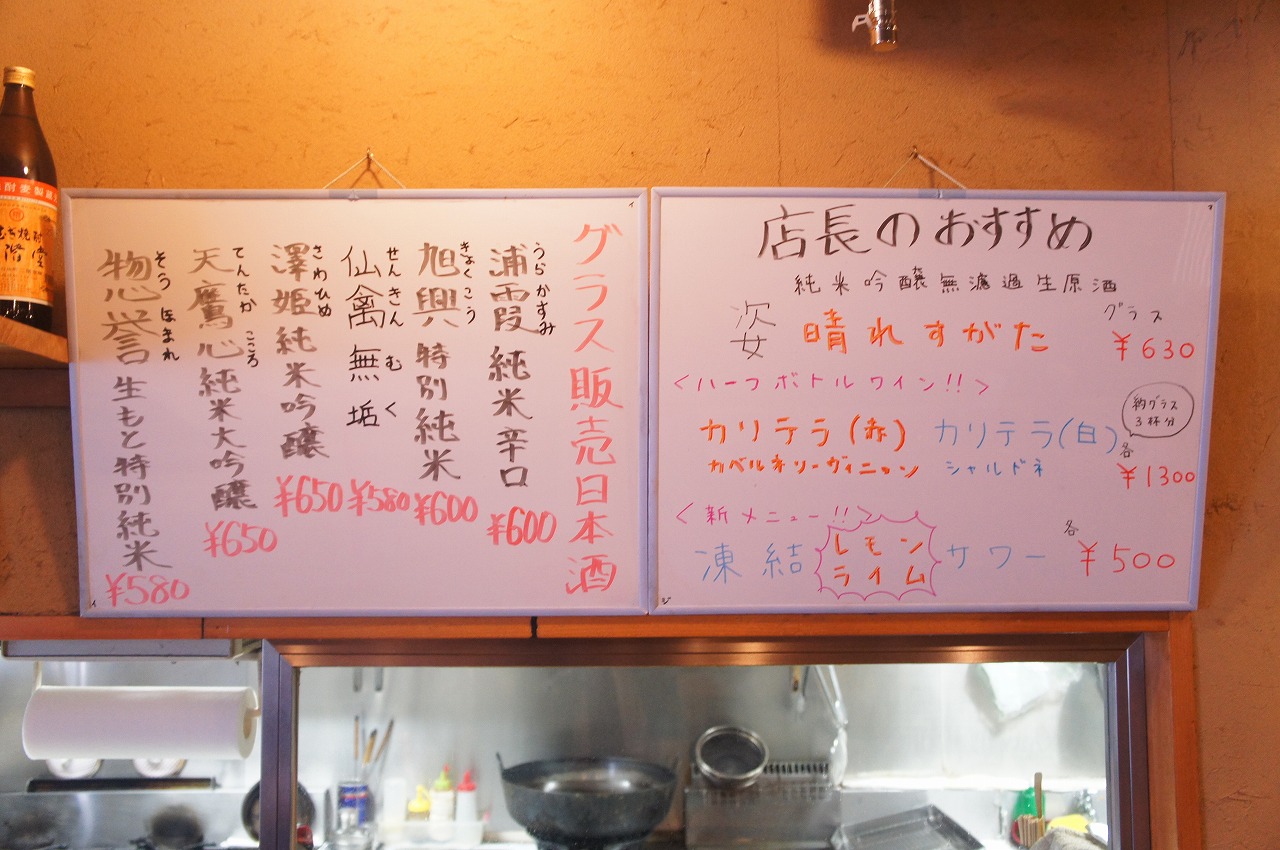 グラス販売日本酒
うらかすみ
浦霞 純米辛口
¥600
きょくこう
旭興 特別純米
¥600
せんきん むく
仙禽無垢
¥580
さわひめ
澤姫 純米吟醸
¥650
てんたか こころ
天鷹心 純米大吟醸
¥650
そう ほまれ
惣誉 生もと特別純米
¥580
店長のおすすめ
純米吟醸無濾過生原酒
姿 晴れすがた
グラス
¥630
<ハーフボトルワイン!!>
カリテラ(赤) カリテラ(白)
カベルネソーヴィニョン シャルドネ
約グラス
3杯分
各
¥1300
<新メニュー!!>
凍結 レモン サワー
ライム
各
¥500
むぎ焼酎
二階堂